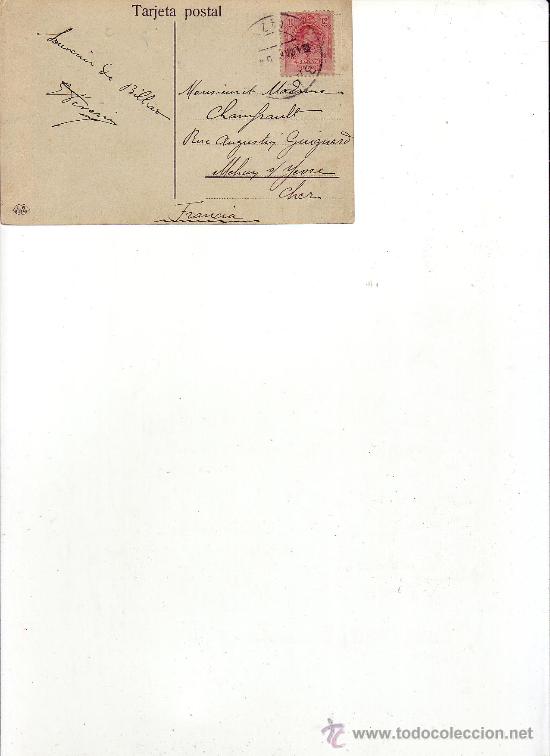 Tarjeta postal
Souvenir de Bilbao
Monsieur et Madame
Champault
Rue Augustin Guignard
Mehun s/ Yevre
Cher
Francia
www.todocoleccion.net